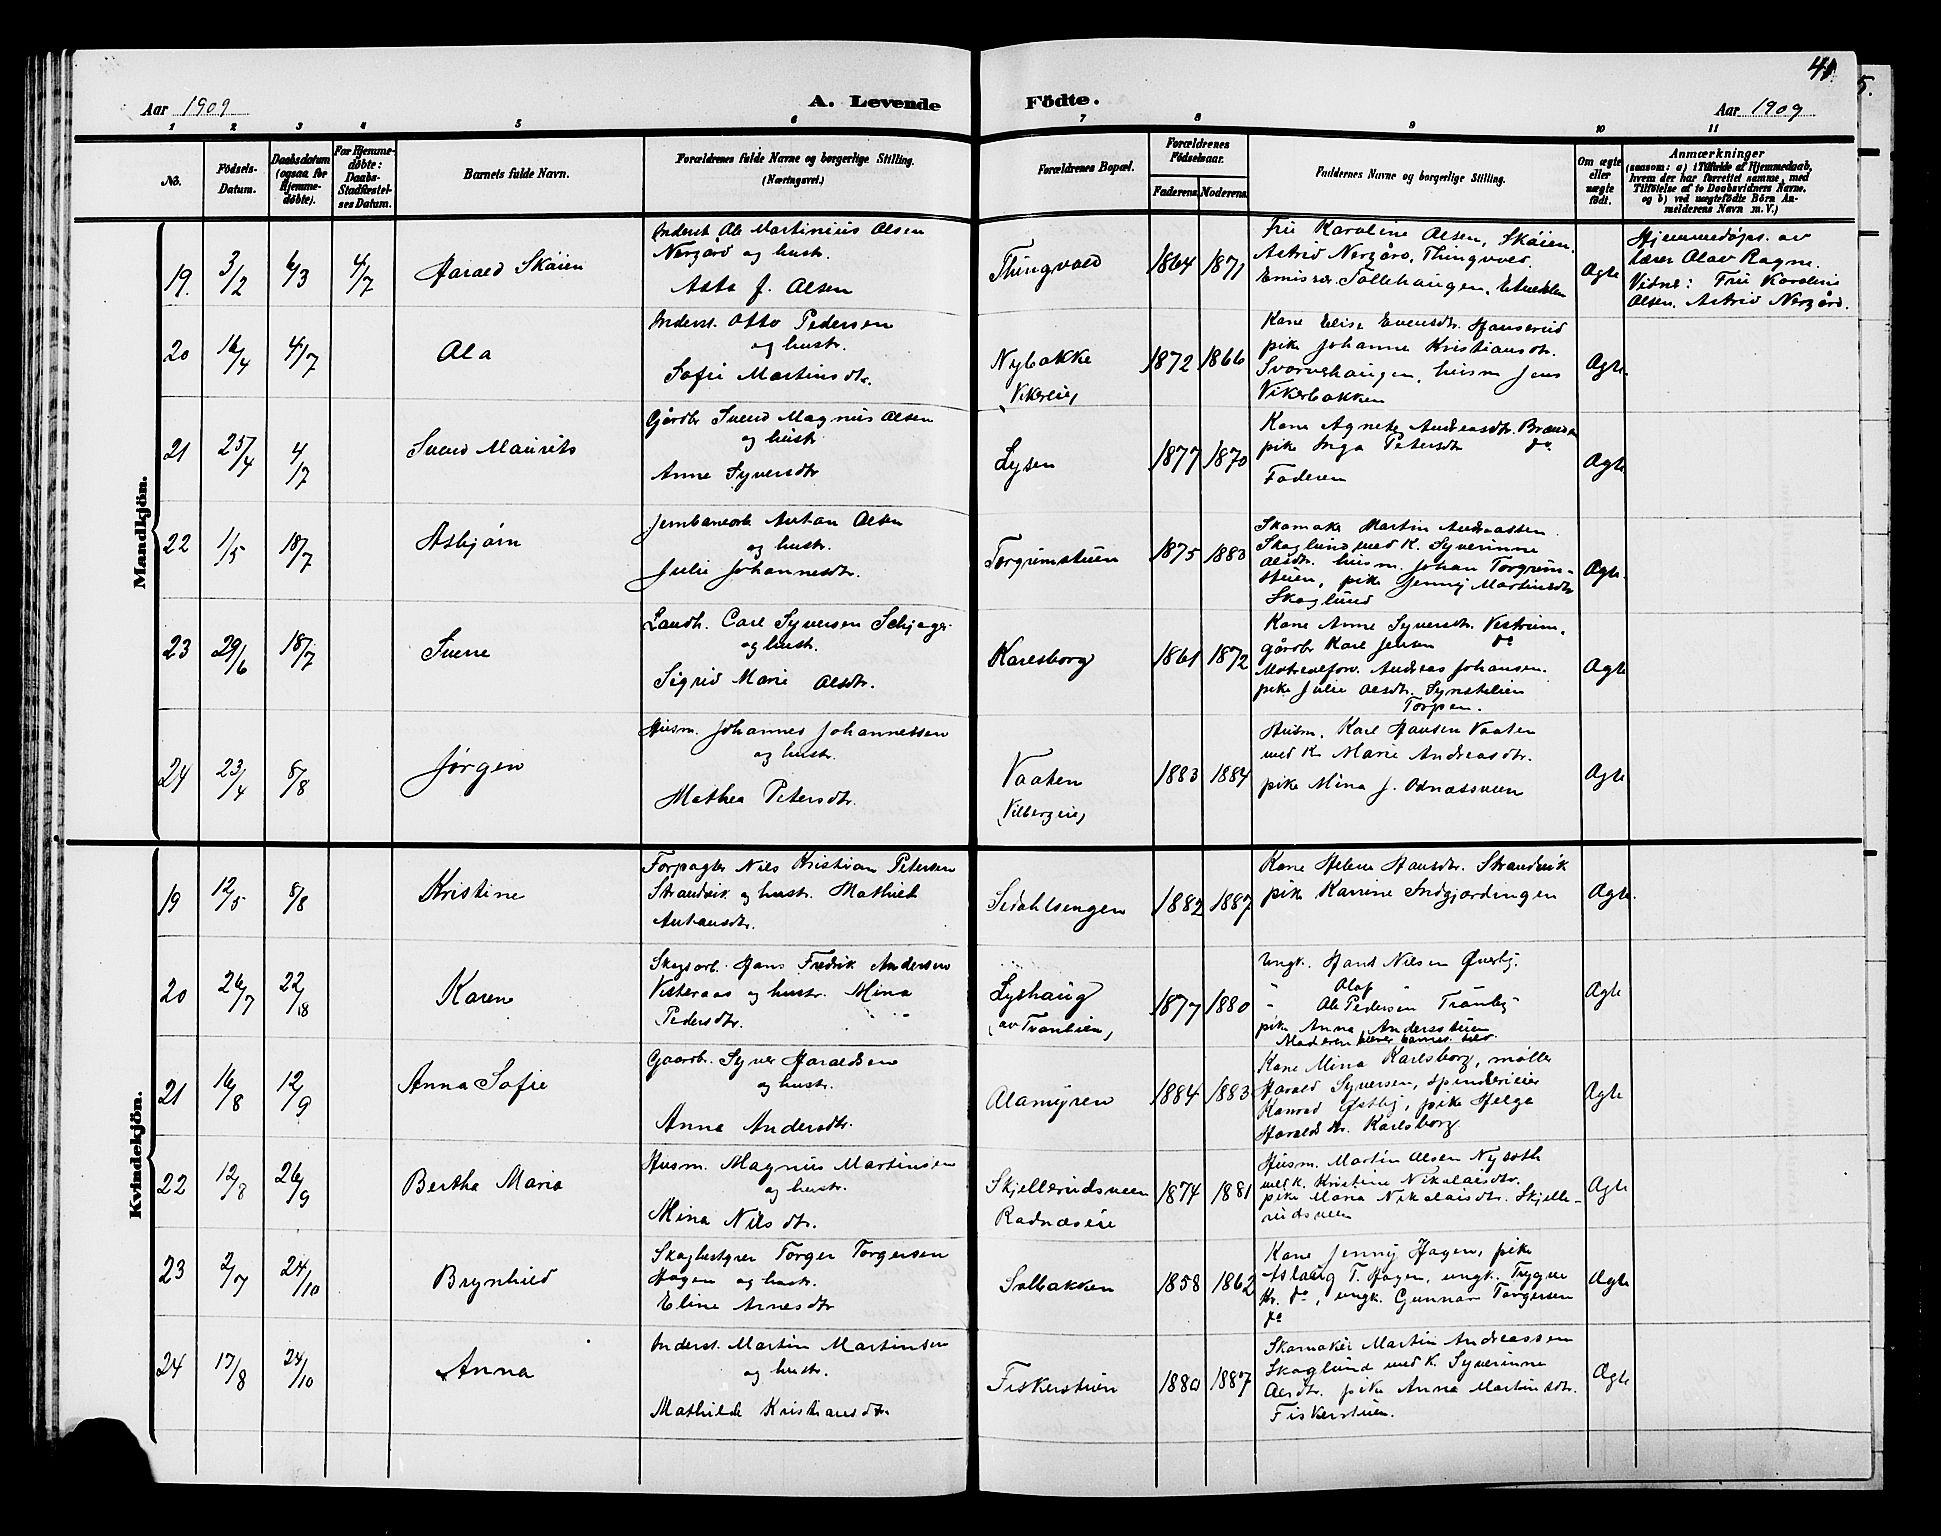 41
Aar 1909
A. Levende Födte.
Aar 1909
1 2 3 4 5 6 7 8 9 10 11
No.
Födsels-
Datum.
Daabsdatum
(ogsaa for
Hjemme-
döbte).
For Hjemme-
döbte:
Daabs-
Stadfæstel-
ses Datum.
Barnets fulde Navn.
Forældrenes fulde Navne og borgerlige Stilling.
(Næringsvei.)
Forældrenes Bopæl.
Forældrenes
Födselsaar.
Faderens. Moderens.
Faddernes Navne og borgerlige Stilling.
Om ægte
eller
uægte
födt.
Anmærkninger
(saasom: a) i Tilfælde af Hjemmedaab,
hvem der har forrettet samme, med
Tilföielse af to Daabsvidners Navne.
og b) ved uægtefödte Börn An-
melderens Navn m. V.)
Mandkjön.
19. 3/2 6/3 4/7 Harald Skåien
Inderst Ole Martinius Olsen
Nergård og hustr.
Asta J. Olsen
Thingvold 1864 1871
Fru Karoline Olsen, Skåien.
Astrid Nergård, Thingvold.
Emissær Tollehaugen, Etnedalen
Ægte
Hjemmedøpt av
Lærer Olav Ragne.
Vidne: Fru Karoline
Olsen. Astrid Nergård.
20 16/4 4/7 Ola
Inderst. Otto Pedersen
og hustr.
Sofie Martinsdtr.
Nybakke
Vikereie, 1872 1866
Kone Elise Evensdtr. Hanserud
pike Johanne Kristiansdtr.
Svarvehaugen, husm Jens
Vikerbakken
Ægte.
21 25/4 4/7 Svend Maurits
Gårdbr Svend Magnus Olsen
og hustr
Anne Syversdtr
Lysen 1877 1870
Kone Agnete Andreasdtr. Branden
pike Inga Petersdtr do
Faderen
Ægte
22 1/5 18/7 Asbjørn
Jernbanearb Anton Olsen
og hustr.
Julie Johannesdtr.
Torgrimstuen 1875 1883
Skomake Martin Andreassen
Skoglund med K. Syverinne
Olsdtr. husm. Johan Torgrim-
stuen, pike Jenny Martinsdtr
Skoglund
Ægte.
23 29/6 18/7 Sverre
Landh. Carl Syversen Schjager
og hustr.
Sigrid Marie Olsdtr.
Karlsborg 1861 1872
Kone Anne Syversdtr. Vestrum.
gårdbr Karl Jensen do
Andreas Johansen.
pike Julie Olsdtr. Synstelien
Torpen.
Ægte
24 23/4 8/8 Jørgen
Husm. Johannes Johannessen
og hustr.
Mathea Petersdtr.
Vaaten
(Vilbergeie) 1883 1884
Husm. Karl Hansen Vaaten
med K Marie Andreasdtr.
pike Mina J. Odnæsveen
Ægte
Kvindekjön.
19 12/5 8/8 Kristine
Forpagter Nils Kristian Petersen
Strandvik og hustr. Mathild
Antonsdtr.
Sedahlsengen 1882 1887
Kone Helene Hansdtr. Strandvik
pike Karine Indgjordingen
Ægte.
20 26/7 22/8 Karen
Skogsarb. Hans Fredrik Andersen
Vesteraas og hustr. Mina
Pedersdtr.
Lyshaug
(av Tranlien) 1877 1880
Ungk. Hans Nilsen Øverby.
" Olaf "
" Ole Pedersen Trånby
pike Anna Andersstuen
Moderen bærer barnet selv.
Ægte
21 16/8 12/9 Anna Sofie
Gaardb. Syver Haraldsen
og hustr.
Anna Andersdtr.
Olamyren 1884 1883
Kone Mina Karlsborg, møller
Harald Syversen, Spinderieier
Konrad Østby, pike Helga
Haraldsdtr. Karlsborg
Ægte
22 12/8 26/9 Bertha Marie
Husm. Magnus Martinsen
og hustr.
Mina Nilsdtr.
Skjellerudsveen
Radnæseie 1874 1881
Husm. Martin Olsen Nyseth
med K. Kristine Nikolaisdtr.
pike Maria Nikolaisdtr. Skjelle-
rudsveen
Ægte
23 2/7 24/10 Brynhild
Skogbestyrer Torger Torgersen
Hagen og hustr.
Eline Arnesdtr
Solbakken 1858 1862
Kone Jenny Hagen, pike
Aslaug T. Hagen, ungk. Trygve
Kr. do, ungk. Gunnar Torgersen
do
Ægte
24 17/8 24/10 Anna
Inderst. Martin Martinsen
og hustr.
Mathilde Kristiansdtr
Fiskerstuen 1880 1887
Skomaker Martin Andreassen
Skoglund med K. Syverinne
Olsdtr. pike Anna Martinsdtr.
Fiskerstuen.
Ægte